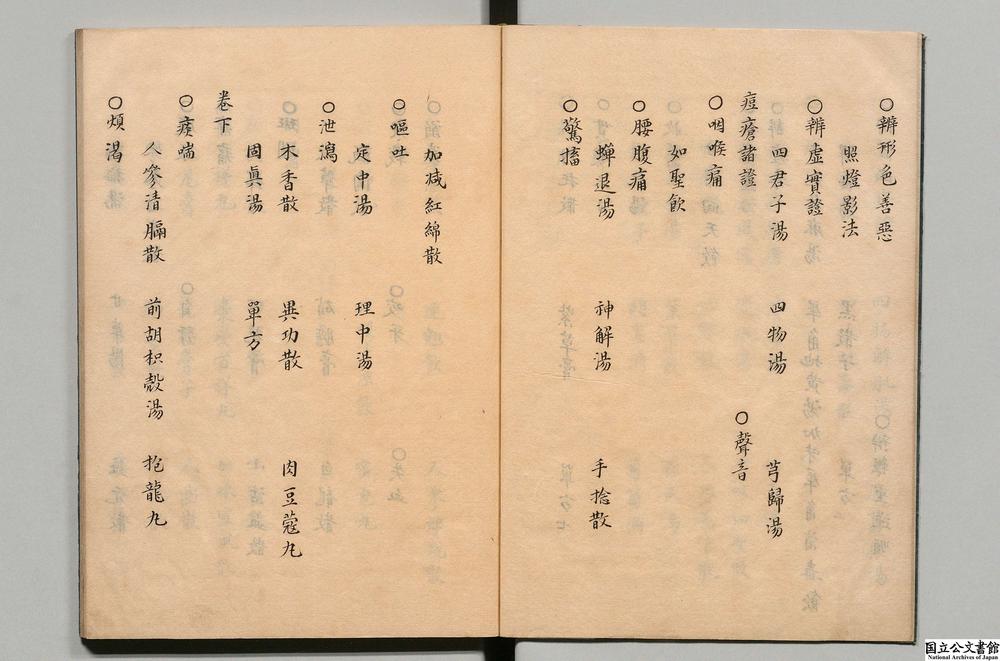 ○辨形色善惡
照燈影法
○辨虛實證
四君子湯 四物湯 芎歸湯
痘瘡諸證 ○聲音
○咽喉痛
如聖飲
○腰腹痛
○蟬退湯 神解湯 手捻散
○驚搐
加減紅綿散
○嘔吐
定中湯 理中湯
○泄瀉
木香散 異功散 肉豆蔻丸
固眞湯 單方
卷下
○痰喘
人參清膈散 前胡枳殼湯 抱龍丸
○煩渴
国立公文書館
National Archives of Japan